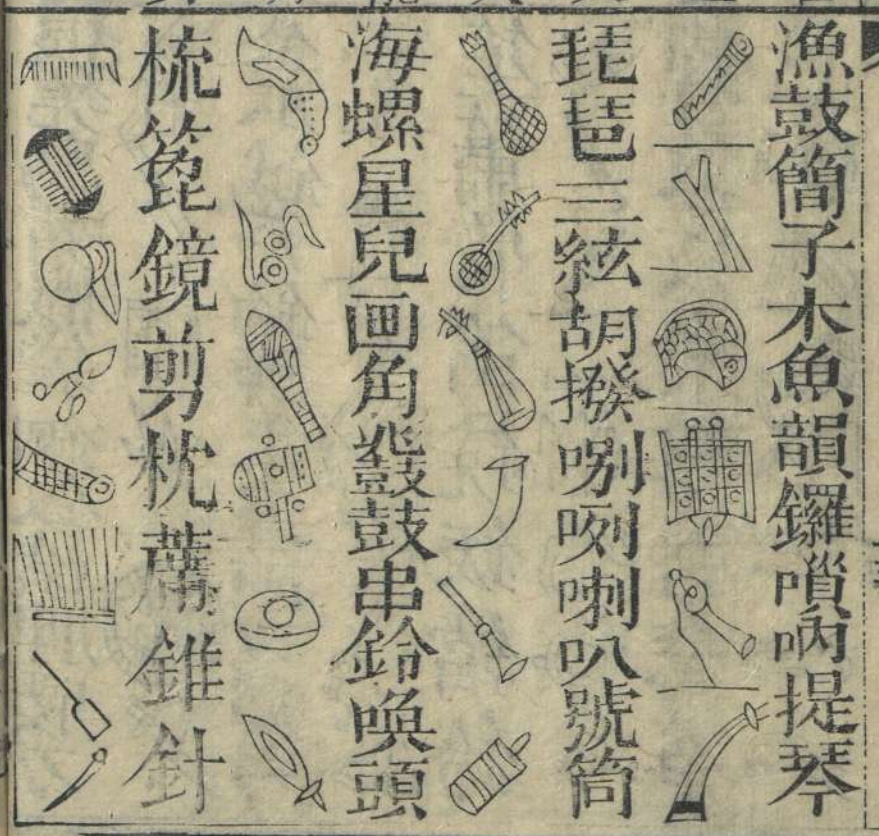 漁鼓簡子木魚韻鑼嗩吶提琴
琵琶三絃胡撥哵咧喇叭號筒
海螺星兒画角鼗鼓串鈴喚頭
梳篦鏡剪枕薦錐針